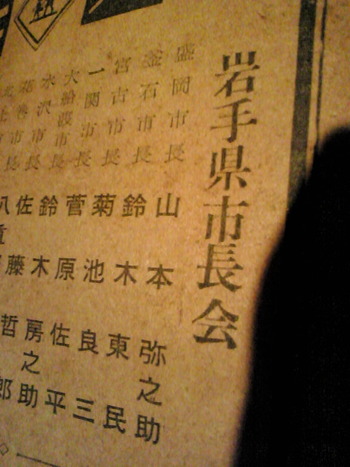 岩手県市長会
盛岡市長 山本弥之助
釜石市長 鈴木東民
宮古市長 菊池良三
一関市長 菅原佐平
大船渡市長 鈴木房之助
水沢市長 佐藤哲郎
花巻市長 八重